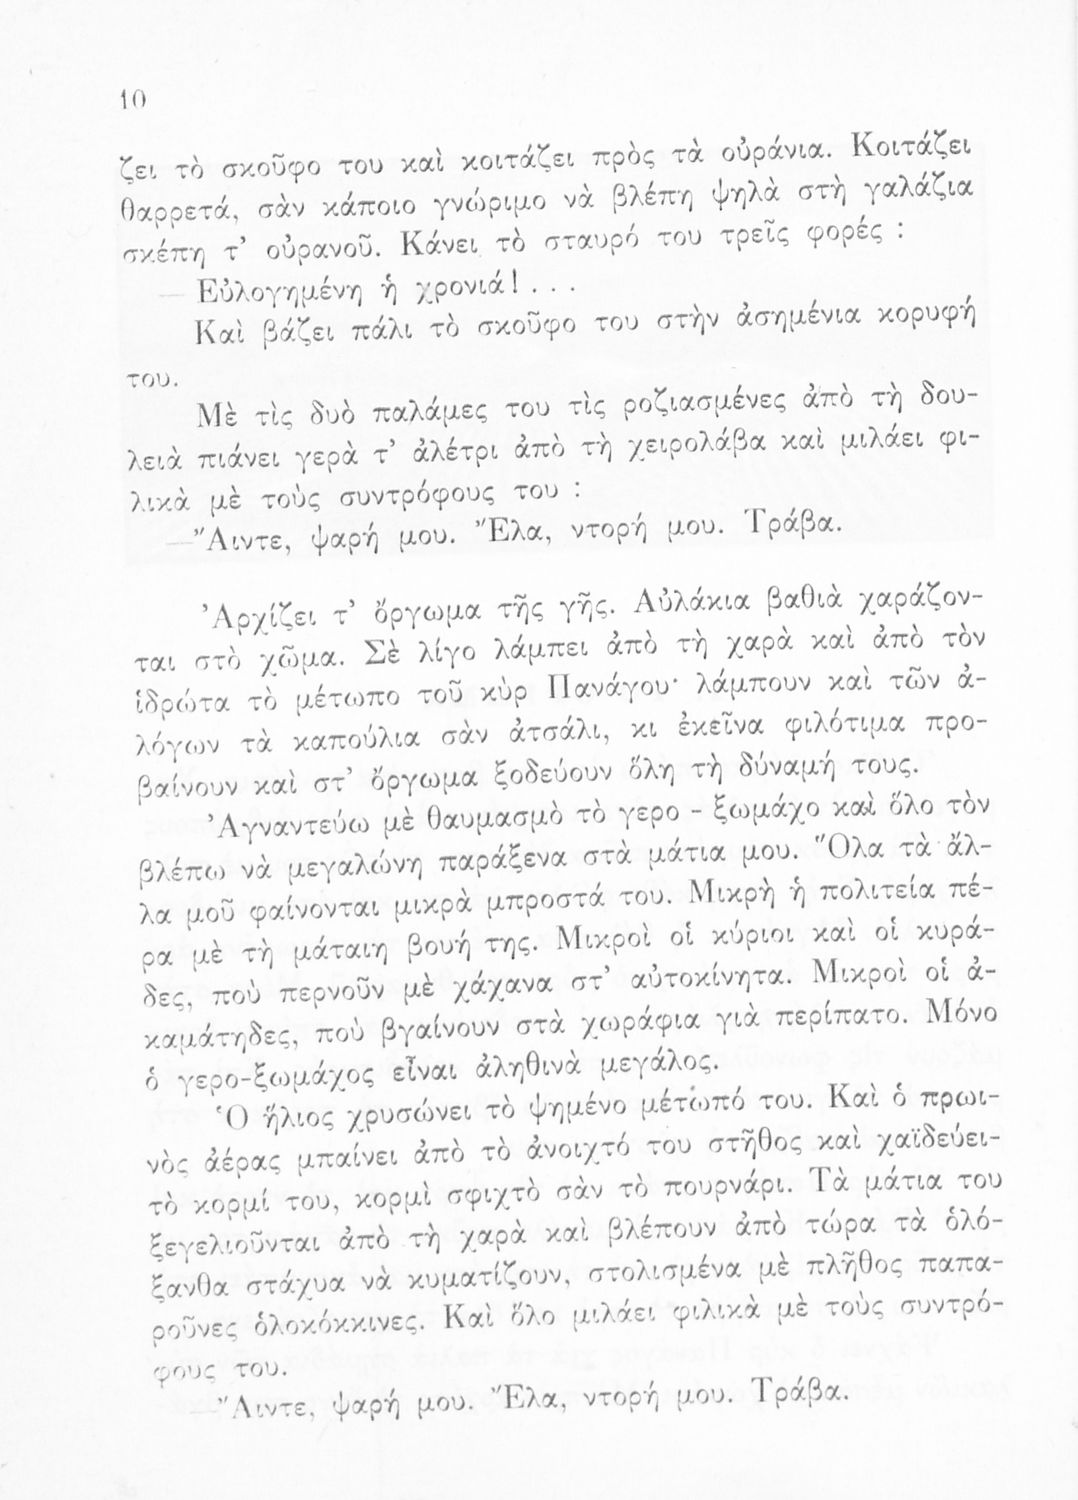 10
ζει τὸ σκοῦφο του καὶ κοιτάζει πρὸς τὰ οὐράνια. Κοιτάζει
θαρρετά, σὰν κάποιο γνώριμο νὰ βλέπη ψηλὰ στὴ γαλάζια
σκέπη τ’ οὐρανοῦ. Κάνει τὸ σταυρό του τρεῖς φορές :
— Εὐλογημένη ἡ χρονιά! . . .
Καὶ βάζει πάλι τὸ σκοῦφο του στὴν ἀσημένια κορυφή
του.
Μὲ τὶς δυὸ παλάμες του τὶς ροζιασμένες ἀπὸ τὴ δου-
λειὰ πιάνει γερὰ τ’ ἀλέτρι ἀπὸ τὴ χειρολάβα καὶ μιλάει φι-
λικὰ μὲ τοὺς συντρόφους του :
—Ἄιντε, ψαρή μου. Ἔλα, ντορή μου. Τράβα.
Ἀρχίζει τ’ ὄργωμα τῆς γῆς. Αὐλάκια βαθιὰ χαράζον-
ται στὸ χῶμα. Σὲ λίγο λάμπει ἀπὸ τὴ χαρὰ καὶ ἀπὸ τὸν
ἱδρώτα τὸ μέτωπο τοῦ κὺρ Πανάγου· λάμπουν καὶ τῶν ἀ-
λόγων τὰ καπούλια σὰν ἀτσάλι, κι ἐκεῖνα φιλότιμα προ-
βαίνουν καὶ στ’ ὄργωμα ξοδεύουν ὅλη τὴ δύναμή τους.
Ἀγναντεύω μὲ θαυμασμὸ τὸ γερο - ξωμάχο καὶ ὅλο τὸν
βλέπω νὰ μεγαλώνη παράξενα στὰ μάτια μου. Ὅλα τὰ ἄλ-
λα μοῦ φαίνονται μικρὰ μπροστά του. Μικρὴ ἡ πολιτεία πέ-
ρα μὲ τὴ μάταιη βουή της. Μικροὶ οἱ κύριοι καὶ οἱ κυρά-
δες, ποὺ περνοῦν μὲ χάχανα στ’ αὐτοκίνητα. Μικροὶ οἱ ἀ-
καμάτηδες, ποὺ βγαίνουν στὰ χωράφια γιὰ περίπατο. Μόνο
ὁ γερο-ξωμάχος εἶναι ἀληθινὰ μεγάλος.
Ὁ ἥλιος χρυσώνει τὸ ψημένο μέτωπό του. Καὶ ὁ πρωι-
νὸς ἀέρας μπαίνει ἀπὸ τὸ ἀνοιχτό του στῆθος καὶ χαϊδεύει-
τὸ κορμί του, κορμὶ σφιχτὸ σὰν τὸ πουρνάρι. Τὰ μάτια του
ξεγελιοῦνται ἀπὸ τὴ χαρὰ καὶ βλέπουν ἀπὸ τώρα τὰ ὁλό-
ξανθα στάχυα νὰ κυματίζουν, στολισμένα μὲ πλῆθος παπα-
ροῦνες ὁλοκόκκινες. Καὶ ὅλο μιλάει φιλικὰ μὲ τοὺς συντρό-
φους του.
—Ἄιντε, ψαρή μου. Ἔλα, ντορή μου. Τράβα.